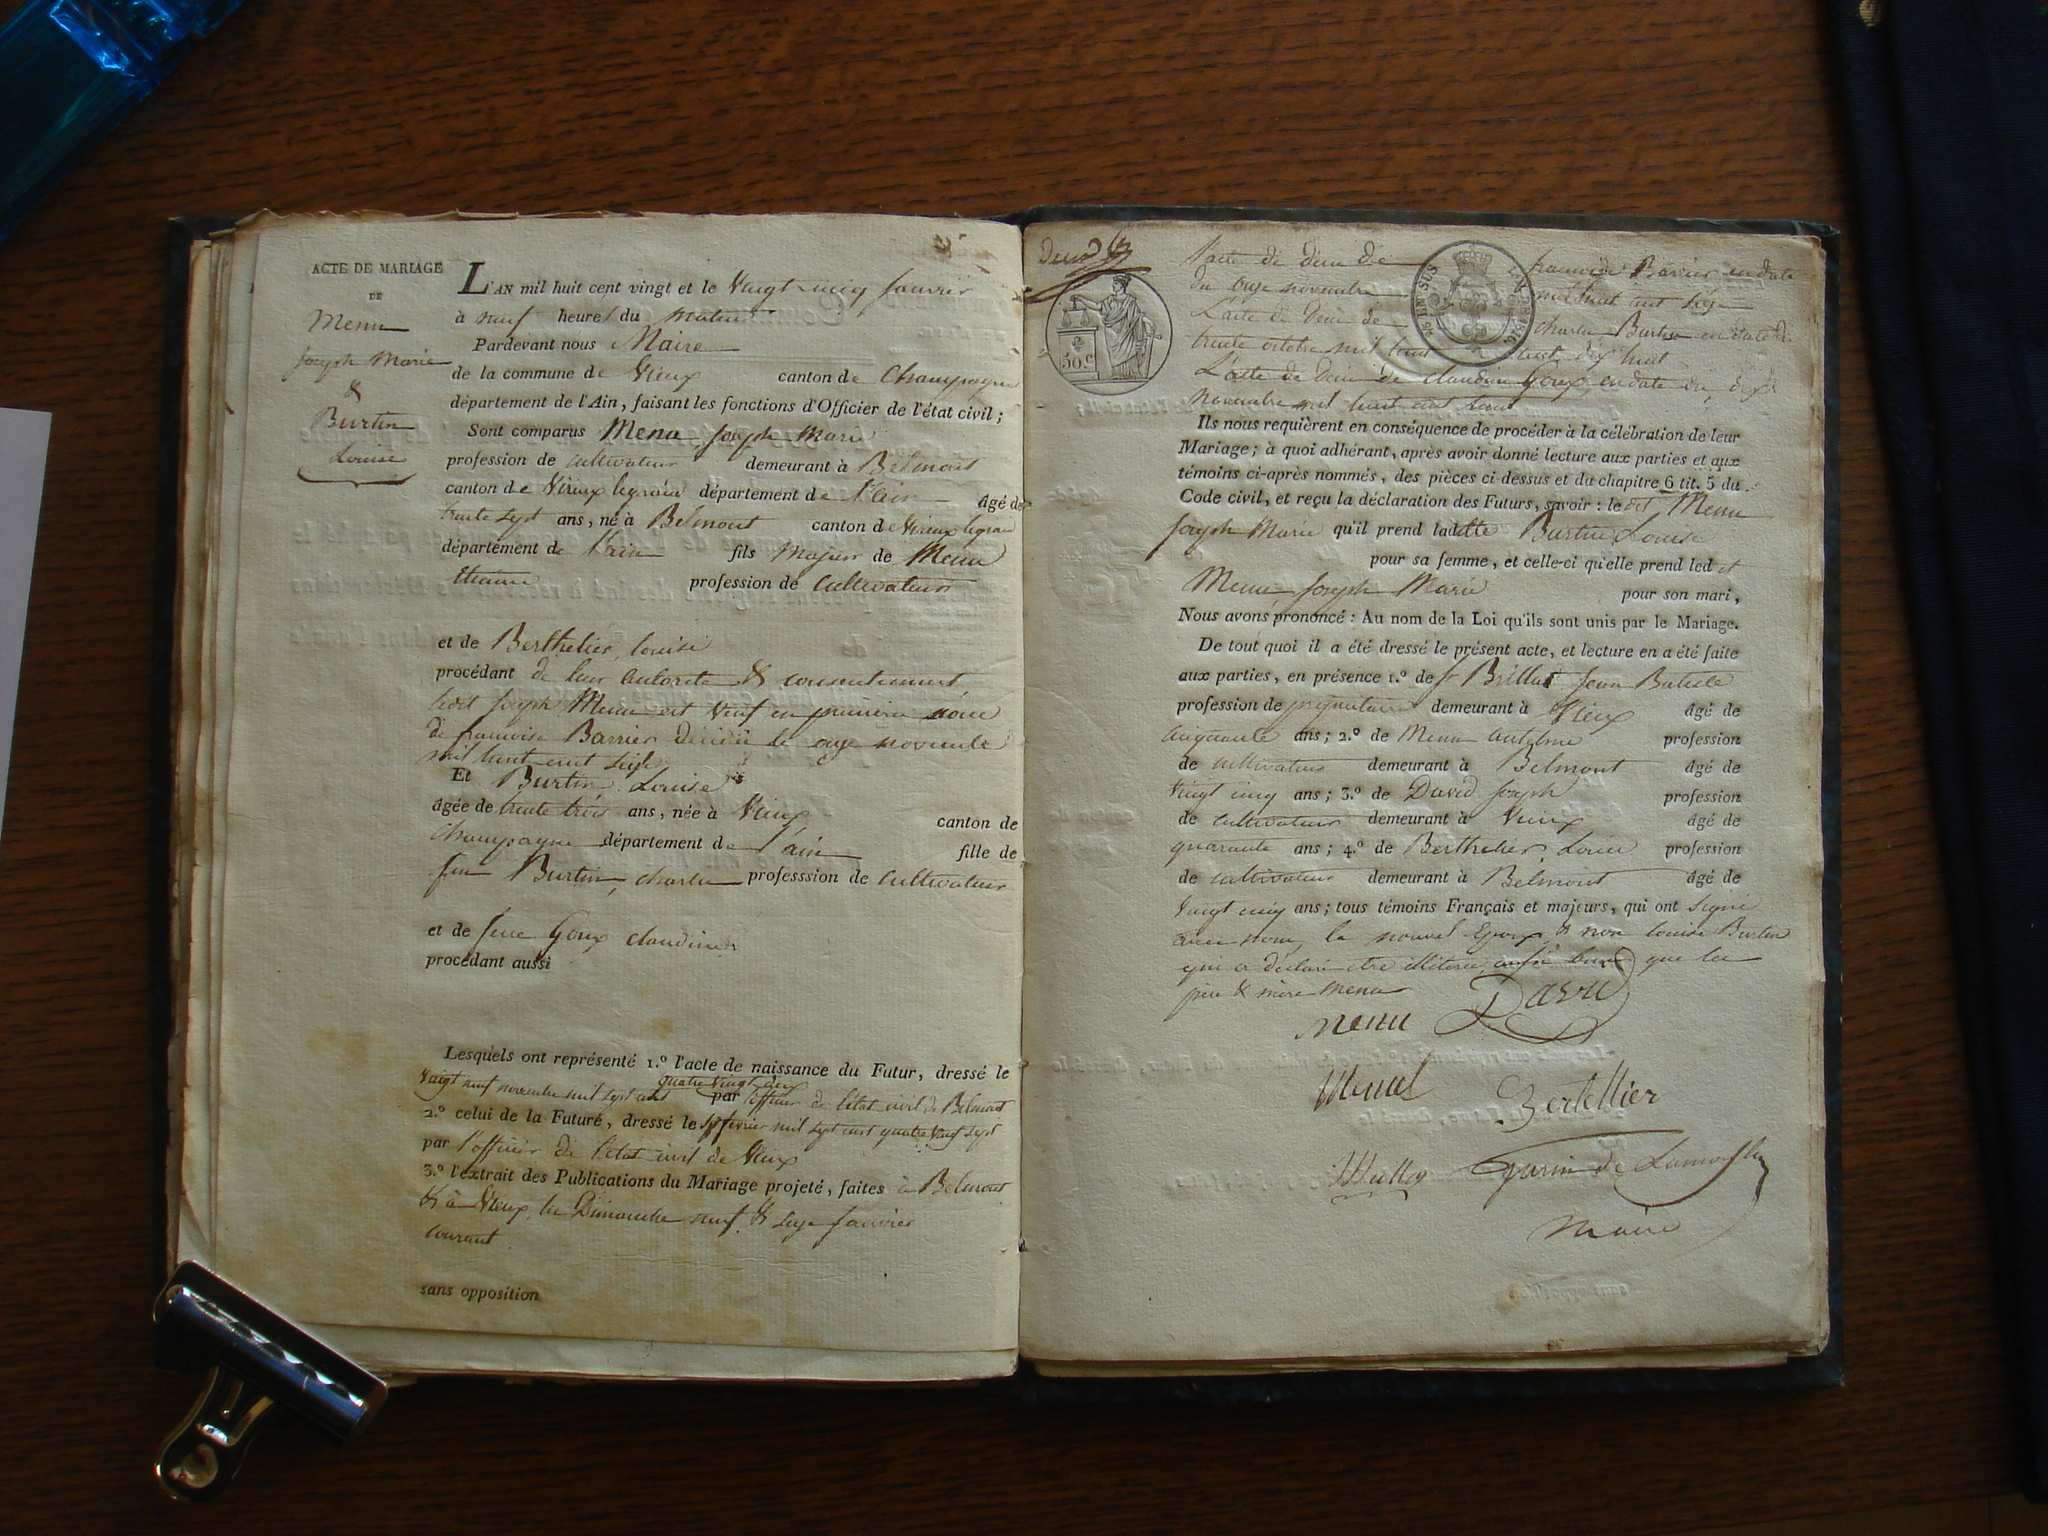 ACTE DE MARIAGE
DE
Menu
Joseph Marie
&
Burtin
Louise
L'AN mil huit cent vingt et le vingt cinq janvier
à neuf heures du matin
Pardevant nous Maire
de la commune de Vieux canton de Champagne
département de l'Ain, faisant les fonctions d'Officier de l'état civil;
Sont comparus Menu Joseph Marie
profession de cultivateur demeurant à Belmont
canton de Virieux legrand département de l'ain âgé de
trente sept ans, né à Belmont canton de Virieux legrand
département de l'ain fils majeur de Menu
Etienne profession de cultivateur
et de Berthelier, Louise
procédant de leur autorité & consentement
ledit Joseph Menu est veuf en première
de francoise Barrier décédée le onze novembre
mil huit cent seize
Et Burtin Louise
âgée de trente trois ans, née à Vieux canton de
champagne département de l'ain fille de
feu Burtin, charles professsion de cultivateur
et de feue Goux claudine
procédant aussi
Lesquels ont représenté 1.º l'acte de naissance du Futur, dressé le
vingt neuf novembre mil sept cent quatre vingt par l'officier de l'état civil de Belmont
2.º celui de la Future, dressé le février mil sept cent quatre vingt sept
par l'officier de l'état civil de Vieux
3.º l'extrait des Publications du Mariage projeté, faites à Belmont
& à Vieux les Dimanche neuf & seize janvier
courant
sans opposition
50 c
EN SUS
l'acte de décès de francoise Barrier en date
du onze novembre mil huit cent seize
L'acte de décès de charles Burtin en date du
trente octobre mil huit cent dix huit
L'acte de décès de claudine Goux, en date du
novembre mil huit cent
Ils nous requièrent en conséquence de procéder à la célébration de leur
Mariage; à quoi adhérant, après avoir donné lecture aux parties et aux
témoins ci-après nommés, des pièces ci-dessus et du chapitre 6 tit. 5 du
Code civil, et reçu la déclaration des Futurs, savoir: le dit Menu
Joseph Marie qu'il prend ladette Burtin Louise
pour sa femme, et celle-ci qu'elle prend led it
Menu, Joseph Marie pour son mari,
Nous avons prononcé: Au nom de la Loi qu'ils sont unis par le Mariage.
De tout quoi il a été dressé le présent acte, et lecture en a été faite
aux parties, en présence 1.º de sr Brillat Jean Batiste
profession de propriétaire demeurant à Vieux âgé de
cinquante ans; 2.º de Menu antelme profession
de cultivateur demeurant à Belmont âgé de
vingt cinq ans; 3.º de David Joseph profession
de cultivateur demeurant à Vieux âgé de
quarante ans; 4.º de Berthelier, Louis profession
de cultivateur demeurant à Belmont âgé de
vingt cinq ans; tous témoins Français et majeurs, qui ont signé
avec nous, le nouvel Epoux & non Louise Burtin
qui a déclaré etre illiterée, aussi bien que les
père & mère menu
menu David
menu Bertellier
maire